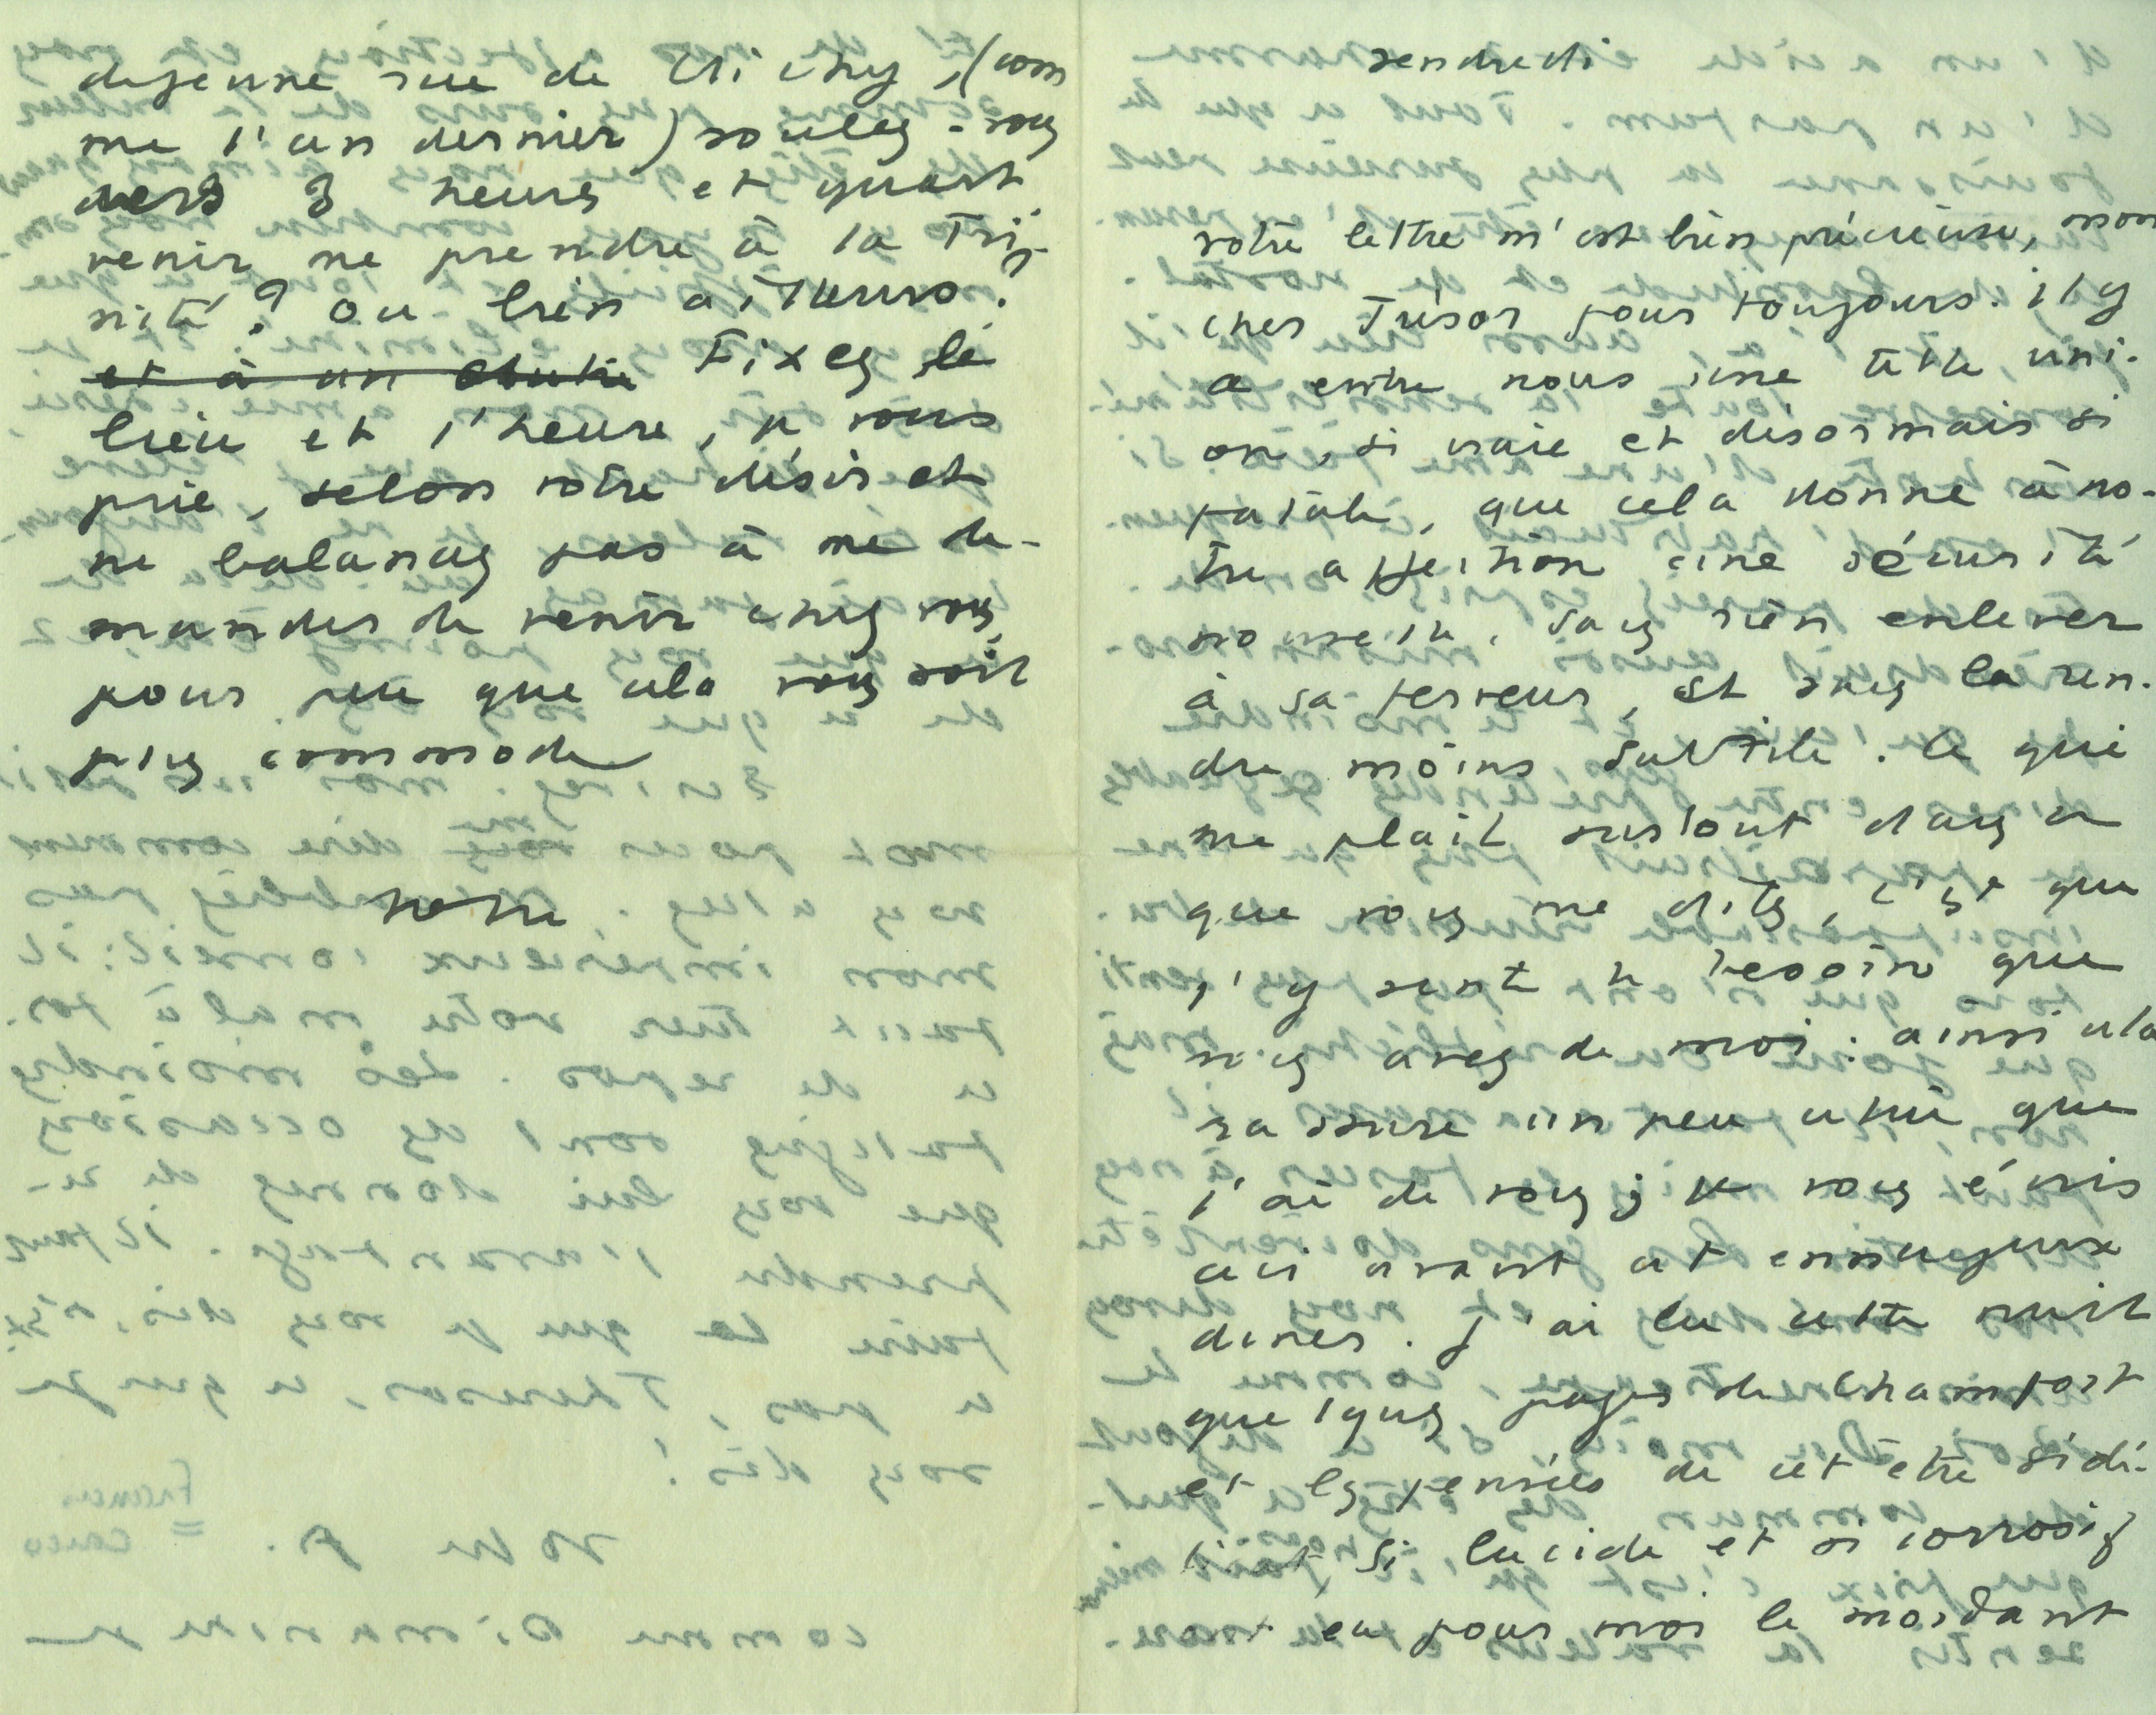 déjeune rue de Clichy, (com
me l'an dernier) voulez-vous
vers 3 heures et quart
venir me prendre à la Tri-
nité ? ou bien ailleurs ?
et à un autre Fixez le
lieu et l'heure, je vous
prie, selon votre désir et
ne balancez pas à me de-
mander de venir chez vous,
pour peu que cela vous soit
plus commode
votre
vendredi
votre lettre m'est bien précieuse, mon
cher Trésor pour toujours. il y
a entre nous une telle uni-
on, si vraie et désormais si
fatale, que cela donne à no-
tre affection une sécurité
nouvelle, sans rien enlever
à sa ferveur, et sans la ren-
dre moins subtile. Ce qui
me plaît surtout dans ce
que vous me dites, c'est que
j'y sent le besoin que
vous avez de moi : ainsi cela
rassure un peu celui que
j'ai de vous ; je vous écris
ceci avant cet ennuyeux
diner. J'ai lu cette nuit
quelques pages de Chamfort
et les pensées de cet être si dé-
licat, si lucide et si corrosif
ont eu pour moi le mordant